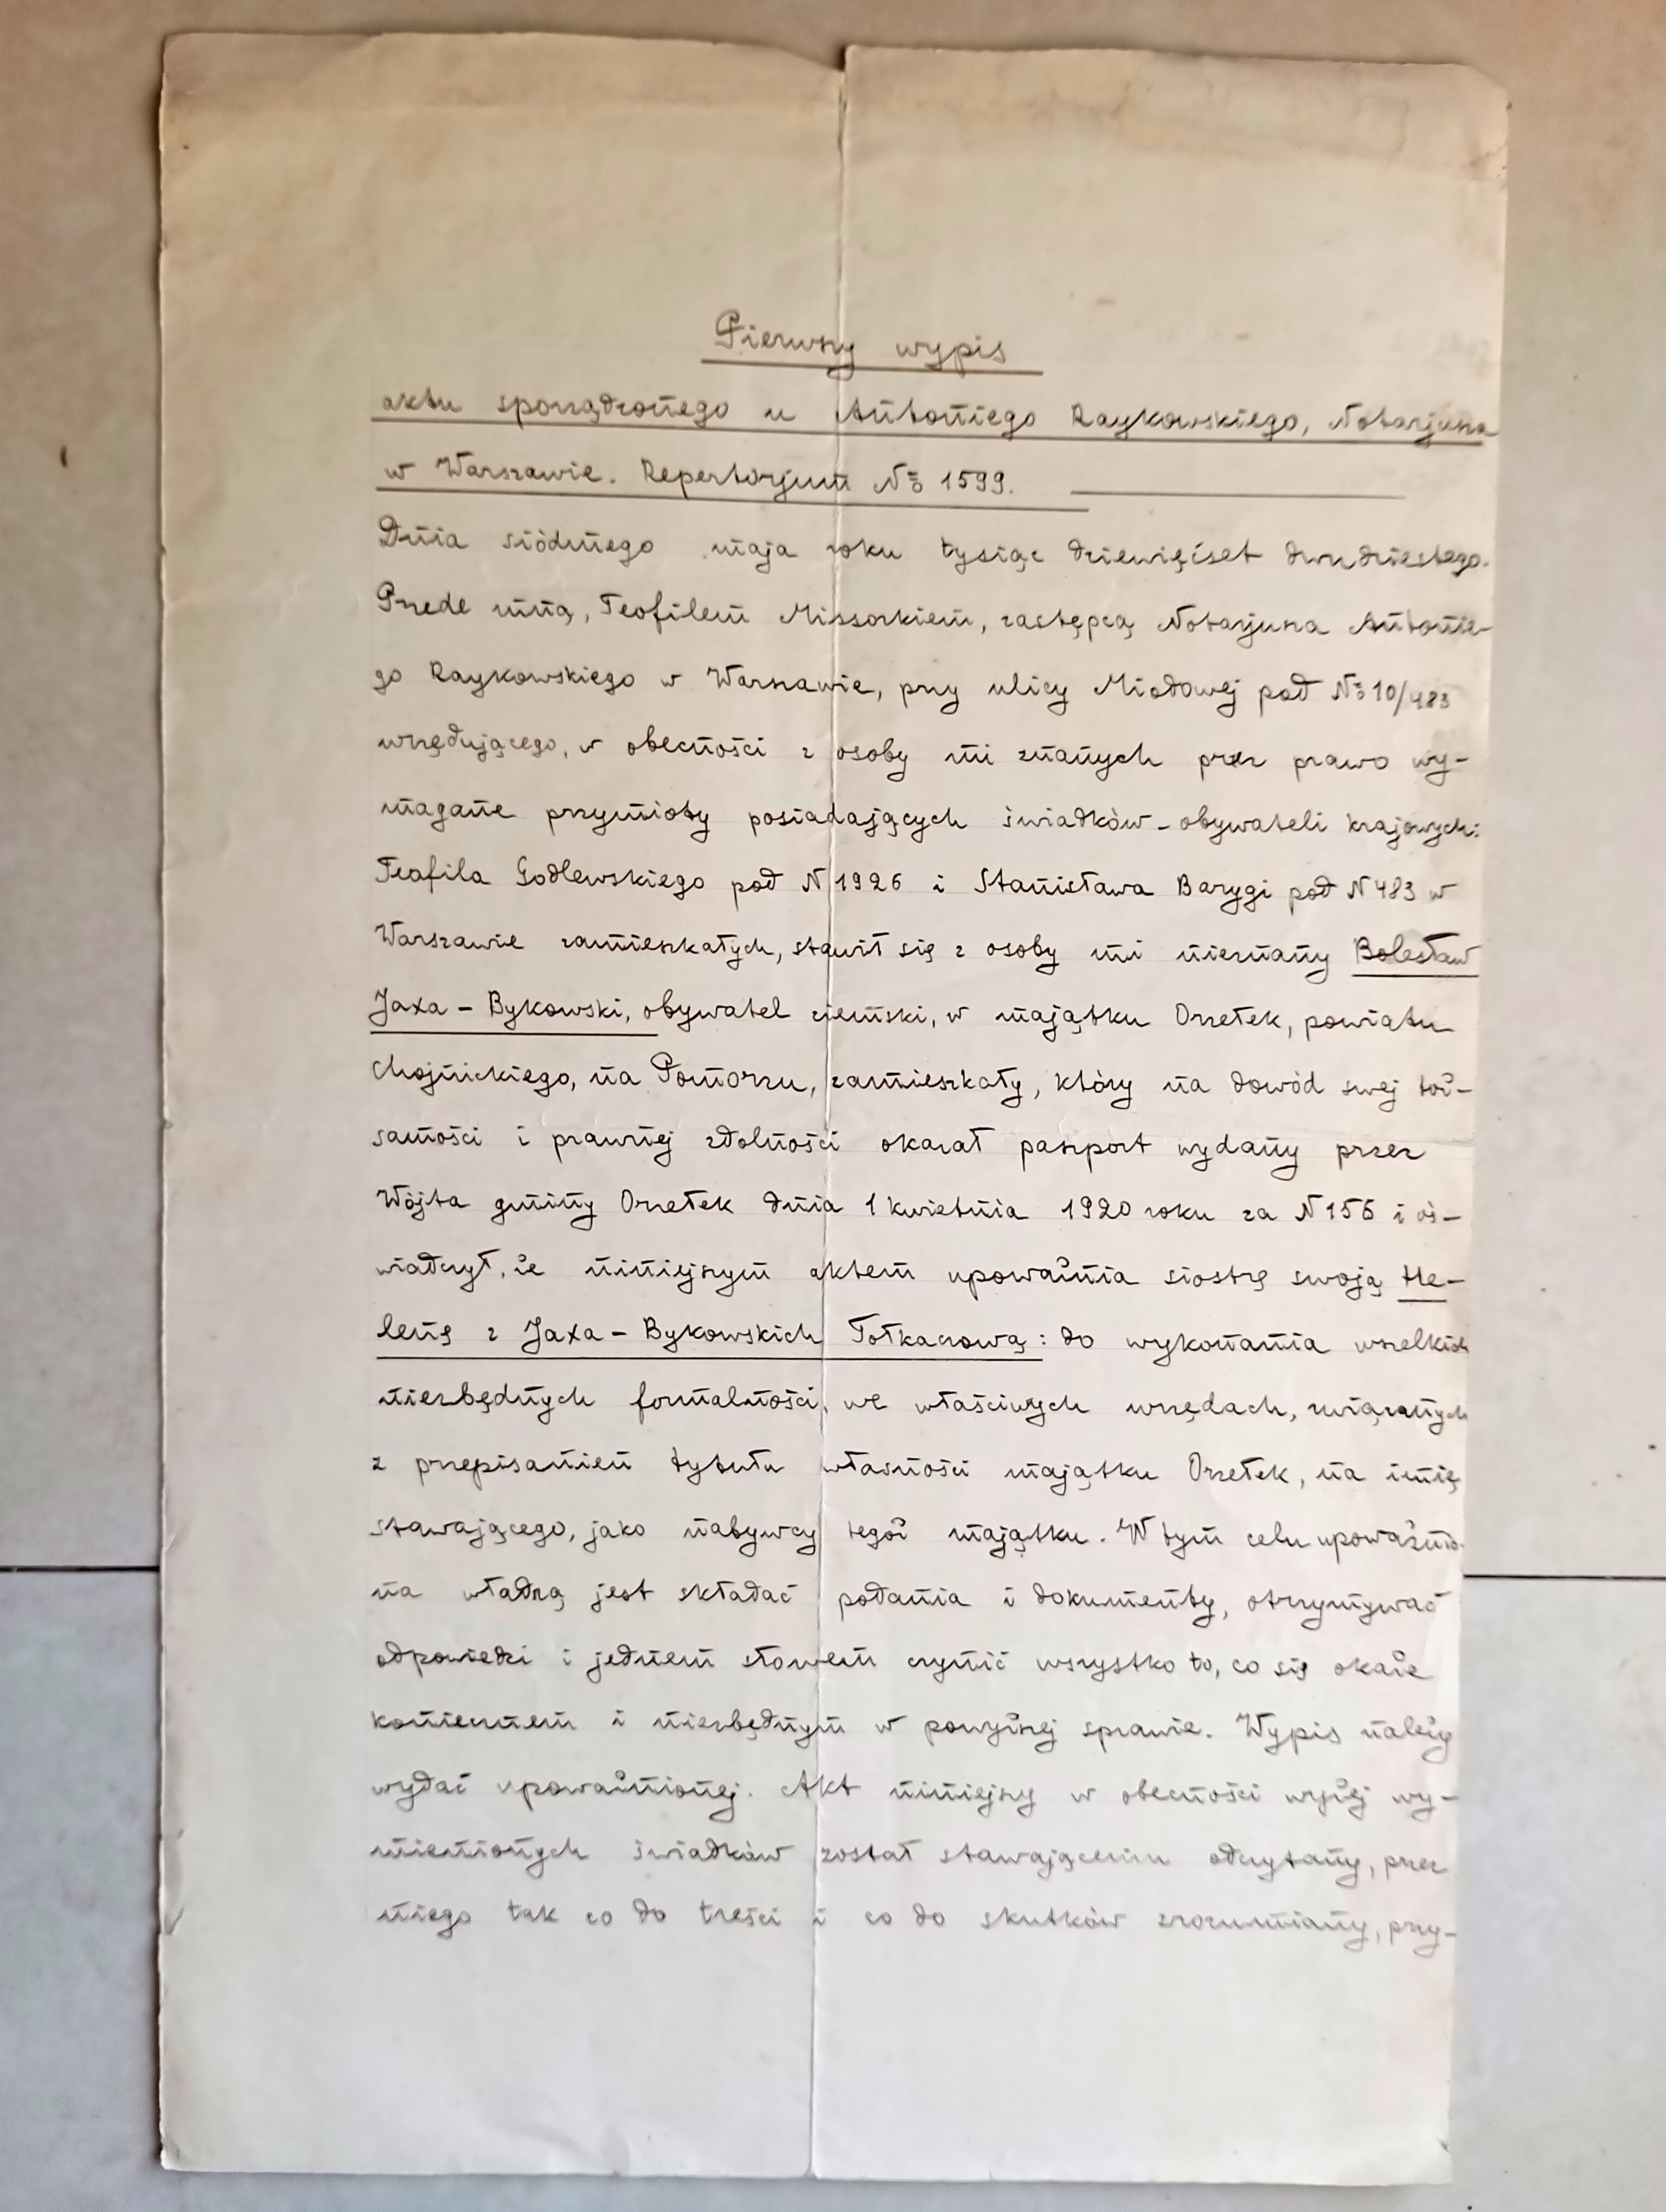 Pierwszy wypis
aktu sporządzonego u Antoniego Raykowskiego, Notarjusza
w Warszawie. Repertorjum № 1599.
Dnia siódmego maja roku tysiąc dziewięćset dwudziestego.
Przede mną, Teofilem Missorkiem, zastępcą Notarjusza Antonie-
go Raykowskiego w Warszawie, przy ulicy Miodowej pod № 10/483
urzędującego, w obecności z osoby mi znanych przez prawo wy-
magane przymioty posiadających świadków-obywateli krajowych:
Teofila Godlewskiego pod N 1926 i Stanisława Barygi pod N 483 w
Warszawie zamieszkałych, stawił się z osoby mi nieznany Bolesław
Jaxa-Bykowski, obywatel ziemski, w majątku Orzełek, powiatu
Chojnickiego, na Pomorzu, zamieszkały, który na dowód swej toż-
samości i prawnej zdolności okazał paszport wydany przez
Wójta gminy Orzełek dnia 1 kwietnia 1920 roku za N 156 i oś-
wiadczył, że niniejszym aktem upoważnia siostrę swoją He-
lenę z Jaxa-Bykowskich Tołkaczową: do wykonania wszelkich
niezbędnych formalności, we właściwych urzędach, związanych
z przepisaniem tytułu własności majątku Orzełek, na imię
stawającego, jako nabywcy tegoż majątku. W tym celu upoważnio-
na władną jest składać podania i dokumenty, otrzymywać
odpowiedzi i jednem słowem czynić wszystko to, co się okaże
koniecznem i niezbędnym w powyższej sprawie. Wypis należy
wydać upoważnionej. Akt niniejszy w obecności wyżej wy-
mienionych świadków został stawającemu odczytany, przez
niego tak co do treści i co do skutków zrozumiany, przy-